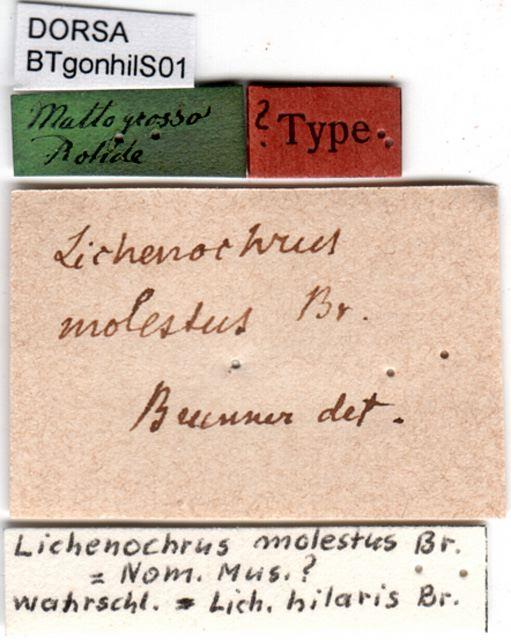 DORSA
BTgonhilS01
Mattogrosso
Rohde
? Type.
Lichenochrus
molestus Br.
Brunner det.
Lichenochrus molestus Br.
= Nom. Mus.?
wahrschl. = Lich. hilaris Br.